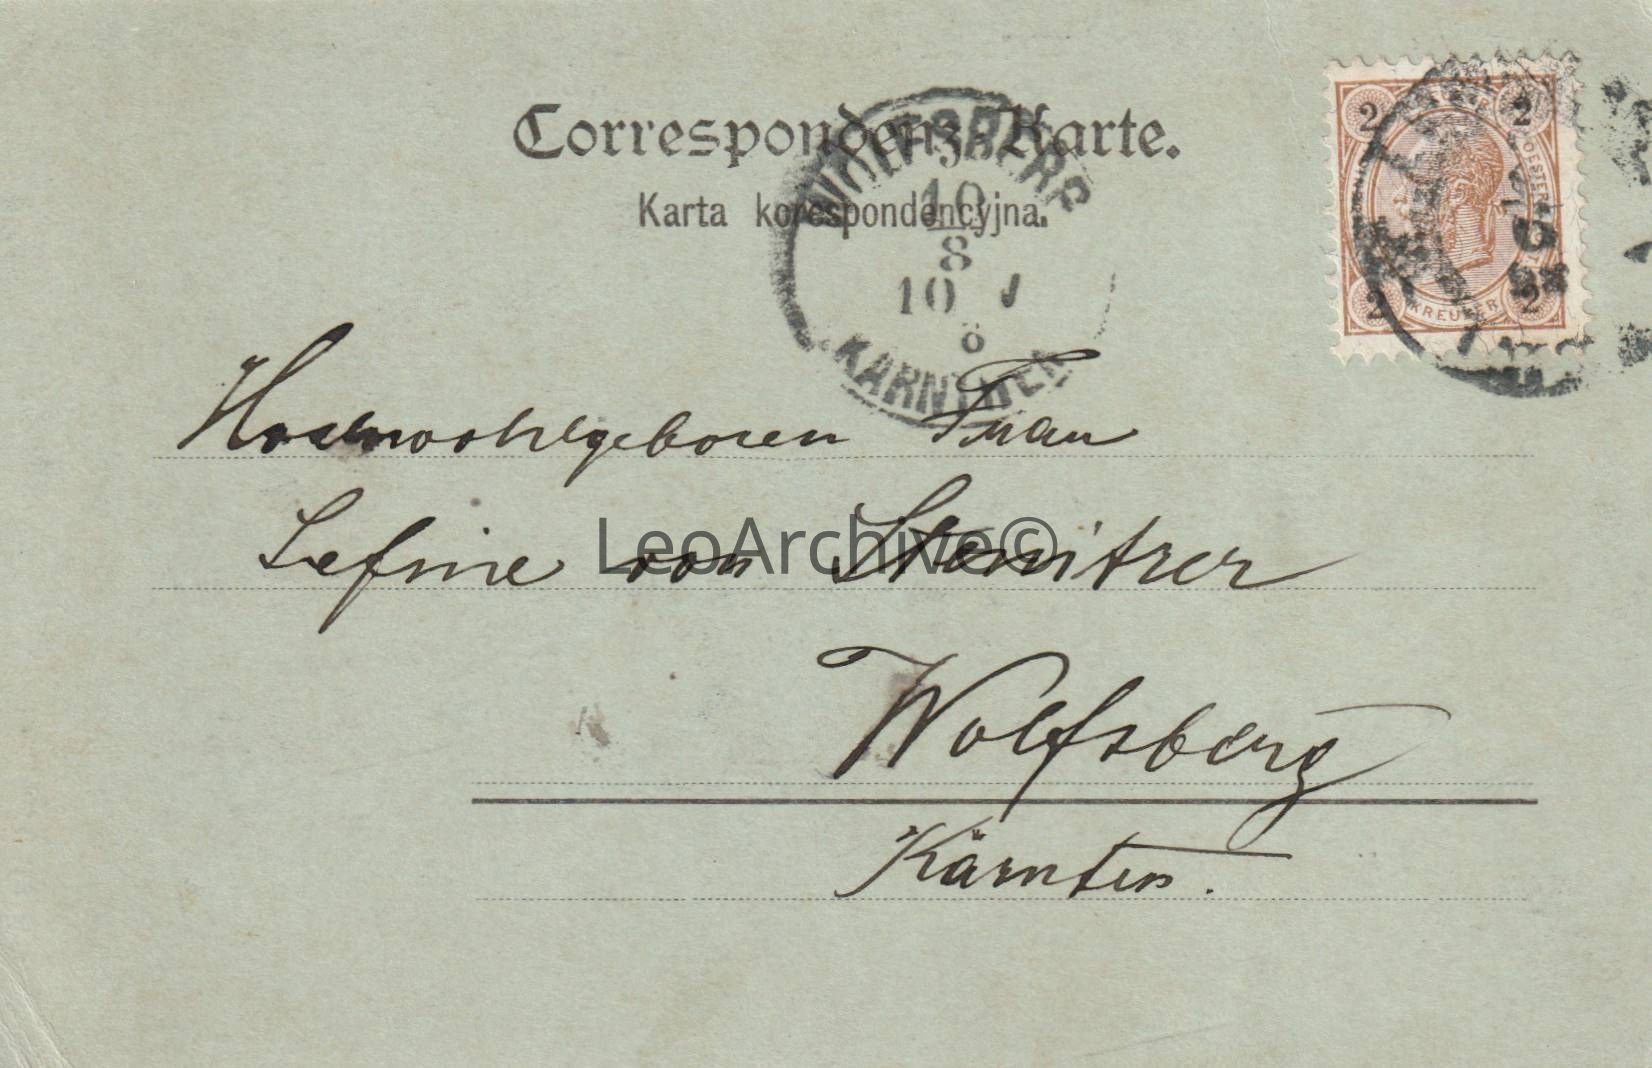 Correspondenz-Karte.
Karta korespondencyjna.
WOLFSBERG
10
8
10
8
KÄRNTEN
2 2
2 2
KREUZER
Hochwohlgeboren Frau
von
LeoArchive©
Wolfsberg
Kärnten.